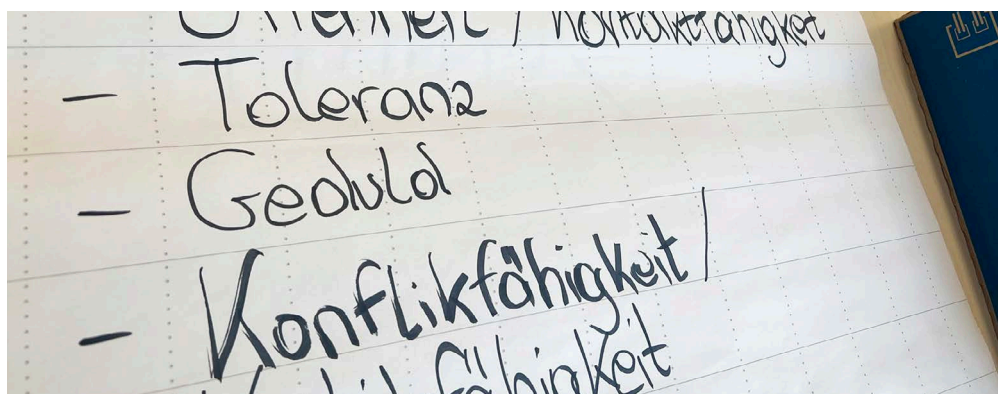 Offenheit / Kontaktfähigkeit
- Toleranz
- Geduld
- Konflikfähigkeit /
fähigkeit